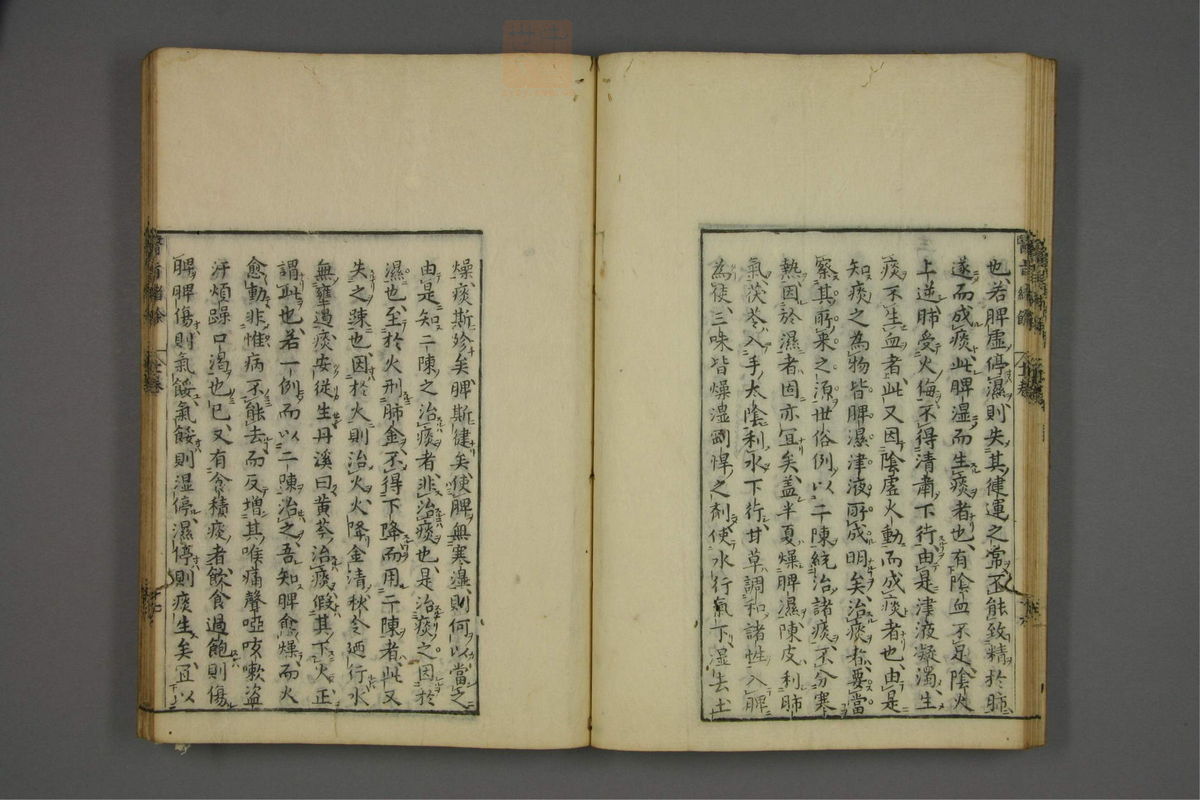 也若脾虛停濕則失其健運之常不能致精於肺
遂而成痰此脾湿而生痰者也有陰血不足陰火
上逆肺受火侮不得清肅下行由是津液凝濁生
痰不生血者此又因陰虛火動而成痰者也由是
知痰之為物皆脾濕津液所成明矣治痰者要當
察其所秉之源世俗例以二陳統治諸痰不分寒
熱因於濕者固亦宜矣盖半夏燥脾濕陳皮利肺
氣茯苓入手太陰利水下行甘草調和諸性入脾
為使三味皆燥湿剛悍之劑使水行氣下湿去土
燥痰斯殄矣脾斯健矣使脾無寒濕則何以當之
由是知二陳之治痰者非治痰也是治痰之因於
濕也至於火刑肺金不得下降而用二陳者此又
失之踈也因於火則治火火降金清秋令廼行水
無壅遏痰安從生丹溪曰黃芩治痰假其下火正
謂此也若一例而以二陳治之吾知脾愈燥而火
愈動非惟病不能去而反增其喉痛聲啞咳嗽盜
汗煩躁口渴也已又有食積痰者飲食過飽則傷
脾脾傷則氣餒氣餒則湿停濕停則痰生矣宜以